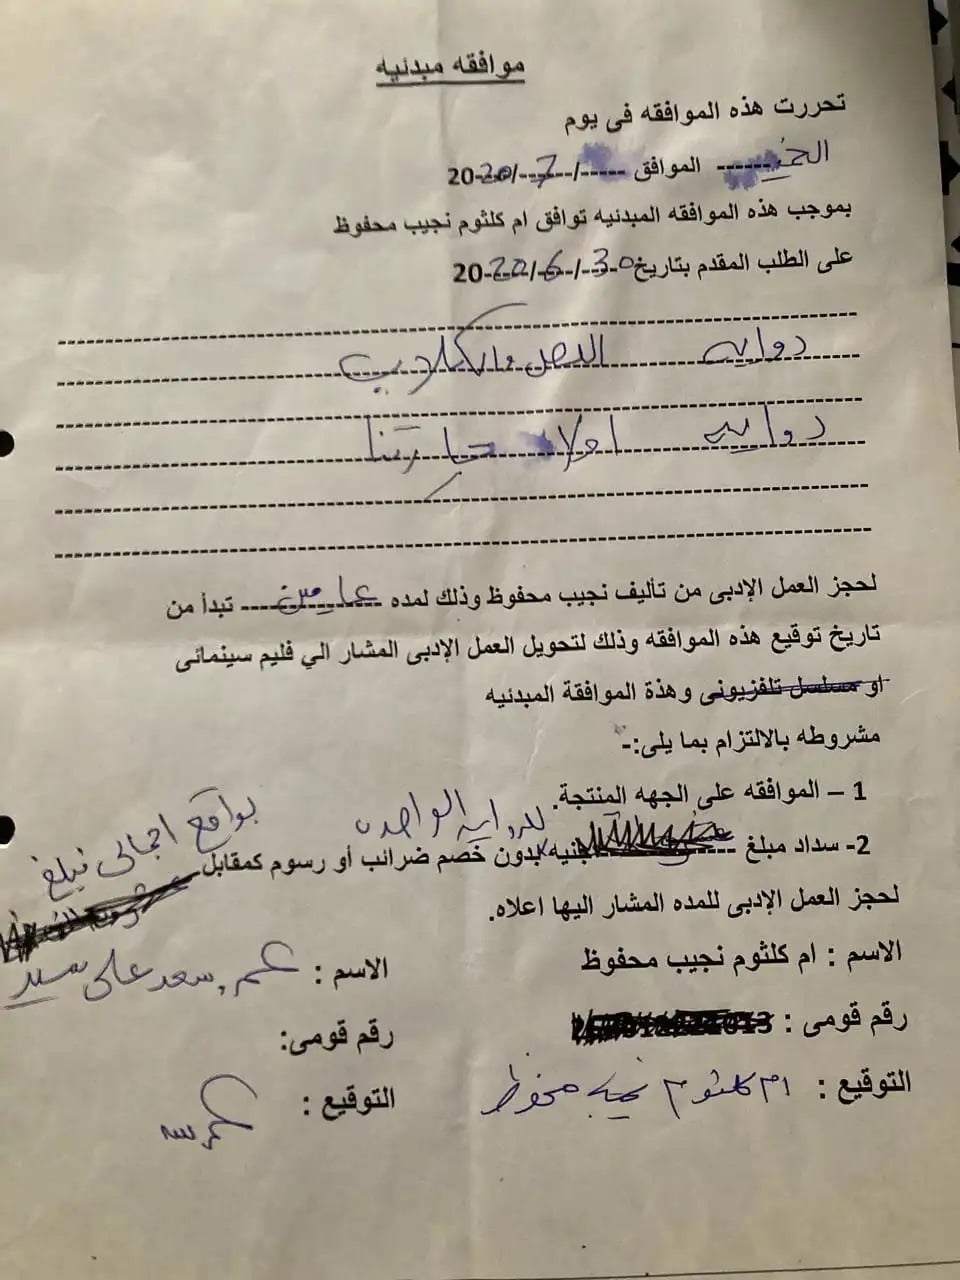 موافقه مبدئيه
تحررت هذه الموافقه فى يوم
الموافق -----/--7--/--2020
بموجب هذه الموافقه المبدئيه توافق ام كلثوم نجيب محفوظ
على الطلب المقدم بتاريخ 30/6/2020
روايه اللص والكلاب
روايه اولاد حارتنا
لحجز العمل الإدبى من تأليف نجيب محفوظ وذلك لمده عامين تبدأ من
تاريخ توقيع هذه الموافقه وذلك لتحويل العمل الإدبى المشار الي فليم سينمائى
او مسلسل تلفزيونى وهذة الموافقة المبدئيه
مشروطه بالالتزام بما يلى:-
1 – الموافقه على الجهه المنتجة.
للروايه الواحده بواقع اجمالى مبلغ
2- سداد مبلغ جنيه بدون خصم ضرائب أو رسوم كمقابل
لحجز العمل الإدبى للمده المشار اليها اعلاه.
الاسم : ام كلثوم نجيب محفوظ الاسم : عمرو سعد على سيد
رقم قومى : رقم قومى:
التوقيع : ام كلثوم نجيب محفوظ التوقيع :